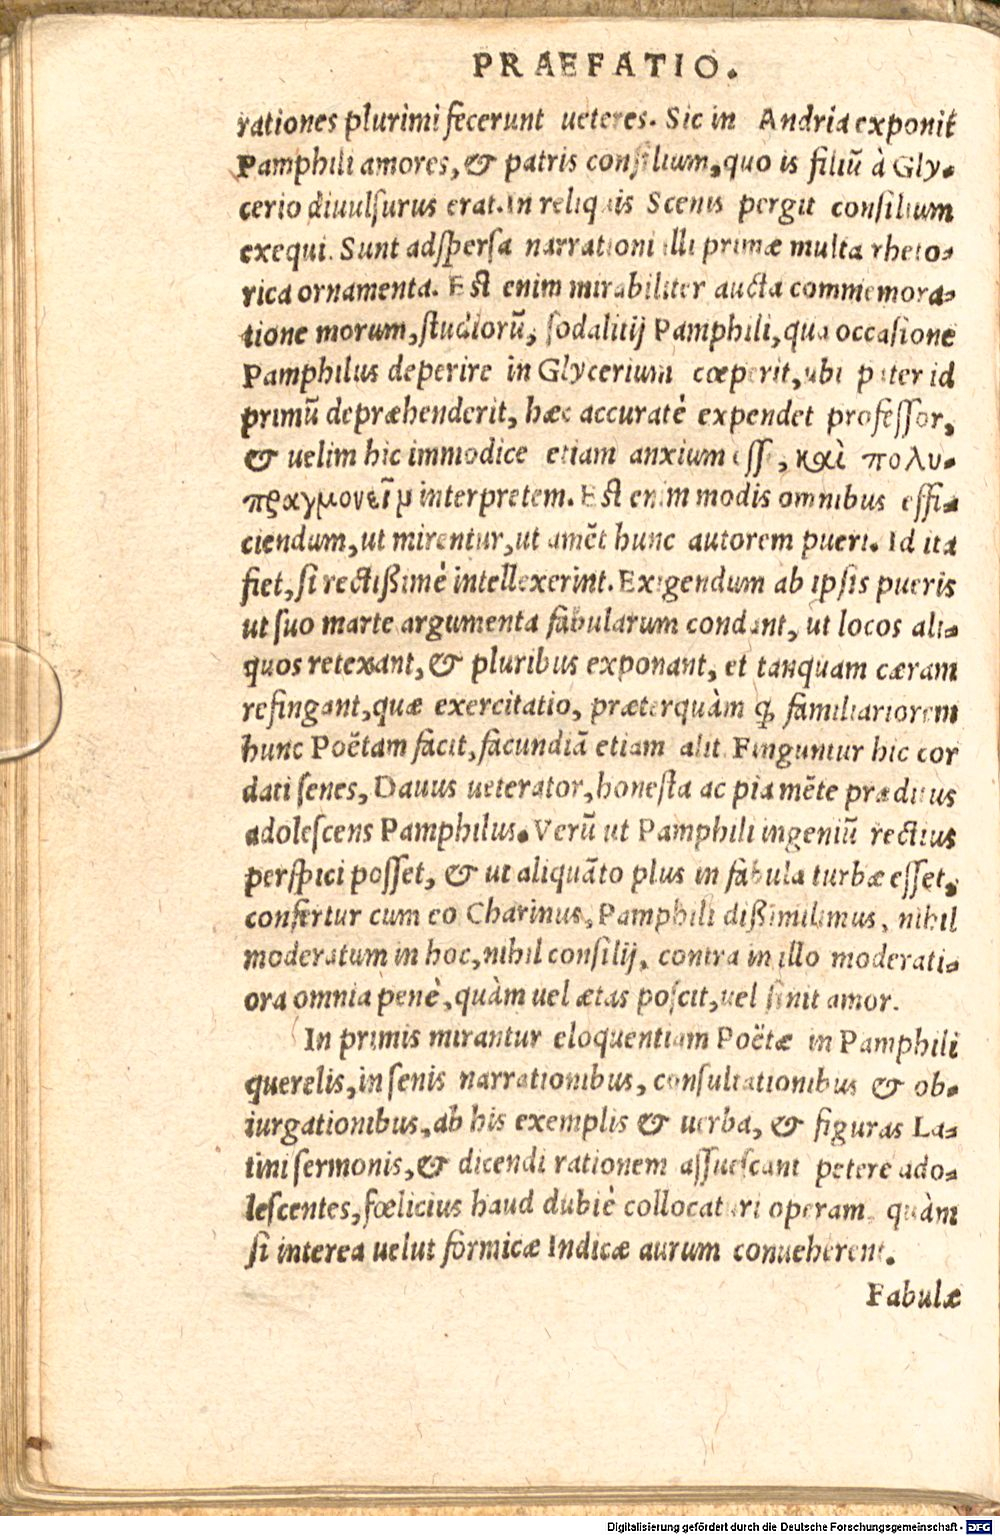 PRAEFATIO.
rationes plurimi fecerunt ueteres. Sic in Andria exponit
Pamphili amores, & patris consilium, quo is filiū à Gly-
cerio diuulsurus erat. In reliquis Scenis pergit consilium
exequi. Sunt adspersa narrationi illi primæ multa rheto-
rica ornamenta. Est enim mirabiliter aucta commemora-
tione morum, studiorū, sodalitij Pamphili, qua occasione
Pamphilus deperire in Glycerium cœperit, ubi pater id
primū depræhenderit, hæc accuratè expendet professor,
& uelim hic immodice etiam anxium esse, καὶ πολυ-
πραγμονεῖν interpretem. Est enim modis omnibus effi-
ciendum, ut mirentur, ut amēt hunc autorem pueri. Id ita
fiet, si rectißimè intellexerint. Exigendum ab ipsis pueris
ut suo marte argumenta fabularum condant, ut locos ali-
quos retexant, & pluribus exponant, et tanquam cæram
refingant, quæ exercitatio, præterquàm ꝙ familiariorem
hunc Poëtam facit, facundiā etiam alit. Finguntur hic cor
dati senes, Dauus ueterator, honesta ac pia mēte præditus
adolescens Pamphilus. Verū ut Pamphili ingeniū rectius
perspici posset, & ut aliquāto plus in fabula turbæ esset,
confertur cum eo Charinus, Pamphili dißimilimus, nihil
moderatum in hoc, nihil consilij, contra in illo moderati-
ora omnia penè, quàm uel ætas poscit, uel sinit amor.
In primis mirantur eloquentiam Poëtæ in Pamphili
querelis, in senis narrationibus, consultationibus & ob-
iurgationibus, ab his exemplis & uerba, & figuras La-
tini sermonis, & dicendi rationem assuescant petere ado-
lescentes, fœlicius haud dubiè collocaturi operam, quàm
si interea uelut formicæ Indicæ aurum conueherent.
Fabulæ
Digitalisierung gefördert durch die Deutsche Forschungsgemeinschaft - DFG